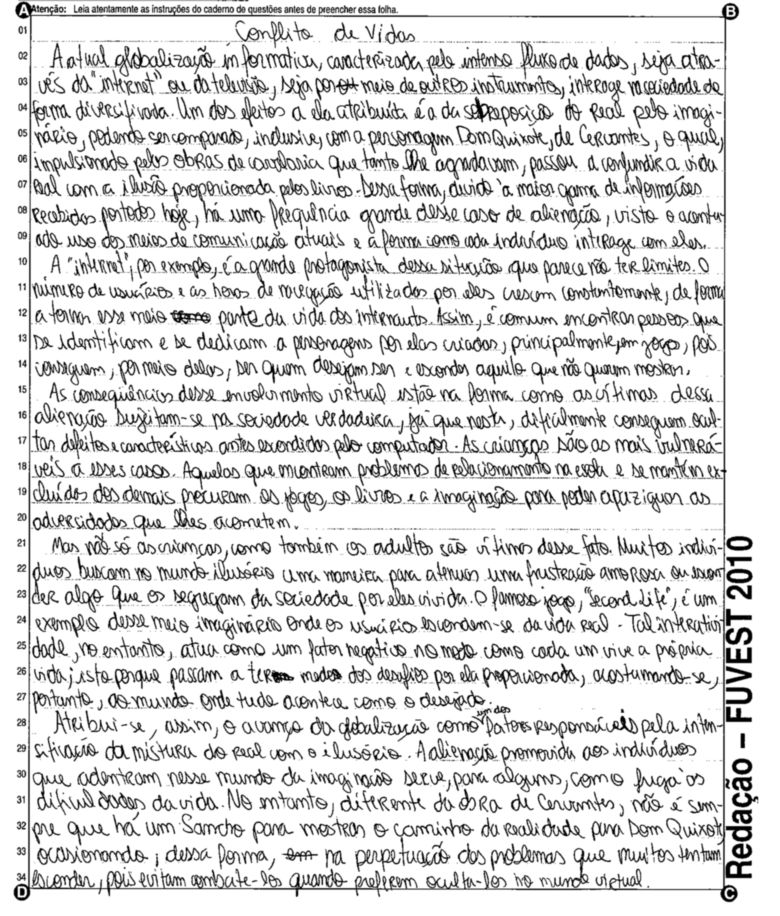 Atenção: Leia atentamente as instruções do caderno de questões antes de preencher essa folha.
A
B
01 Conflito de Vidas
02 A atual globalização informativa, caracterizada pelo intenso fluxo de dados, seja atra-
03 vés da "internet" ou da televisão, seja por meio de outros instrumentos, interage na sociedade de
04 forma diversificada. Um dos efeitos a ela atribuíta é a da sobreposição do Real pelo imagi-
05 nário, podendo ser comparado, inclusive, com a personagem Dom Quixote, de Cervantes, o qual,
06 impulsionado pelas obras de cavalaria que tanto lhe agradavam, passou a confundir a vida
07 Real com a ilusão proporcionada pelos livros. Dessa forma, divido à maior gama de informações
08 Recebidas por todos hoje, há uma frequência grande desse caso de alienação, visto o acentu-
09 ado uso dos meios de comunicação atuais e a forma como cada indivíduo interage com eles.
10 A "internet", por exemplo, é a grande protagonista dessa situação que parece não ter limites. O
11 número de usuários e as horas de navegação utilizadas por eles crescem constantemente, de forma
12 a tornar esse meio parte da vida dos internauts. Assim, é comum encontrar pessoas que
13 se identificam e se dedicam a personagens por elas criadas, principalmente, em jogos, pois
14 conseguem, por meio delas, ser quem desejam ser e esconder aquilo que não querem mostrar.
15 As consequências desse envolvimento virtual estão na forma como as vítimas dessa
16 alienação sujeitam-se na sociedade verdadeira, já que nesta, dificilmente conseguem ocul-
17 tar defeitos e características antes escondidos pelo computador. As caianças são as mais vulnerá-
18 veis a esses casos. Aquelas que encontram problemas de relacionamento na escola e se mantém ex-
19 cluídas dos demais procuram os jogos, os livros e a imaginação para poder apaziguar as
20 adversidades que lhes acometem.
21 Mas não só as crianças, como também os adultos são vítimas desse fato. Muitos indiví-
22 duos buscam no mundo ilusório uma maneira para atenuar uma frustração amorosa ou escon-
23 der algo que os segregam da sociedade por eles vivida. O famoso jogo, "Second Life", é um
24 exemplo desse meio imaginário onde os usuários escondem-se da vida real. Tal interativi-
25 dade, no entanto, atua como um fator negativo no modo como cada um vive a própria
26 vida; isto porque passam a ter medo dos desafios por ela proporcionada, acostumando-se,
27 portanto, ao mundo onde tudo acontece como o desejado.
28 Atribui-se, assim, o avanço da globalização como um dos fatores responsáveis pela inten-
29 sificação da mistura do real com o ilusório. A alienação promovida aos indivíduos
30 que adentram nesse mundo da imaginação serve, para alguns, como fuga às
31 dificuldades da vida. No entanto, diferente da obra de Cervantes, não é sem-
32 pre que há um Sancho para mostrar o caminho da realidade para Dom Quixote,
33 ocasionando, dessa forma, na perpetuação dos problemas que muitos tentam
34 esconder, pois evitam combate-los quando preferem oculta-los no mundo virtual.
D
C
Redação – FUVEST 2010